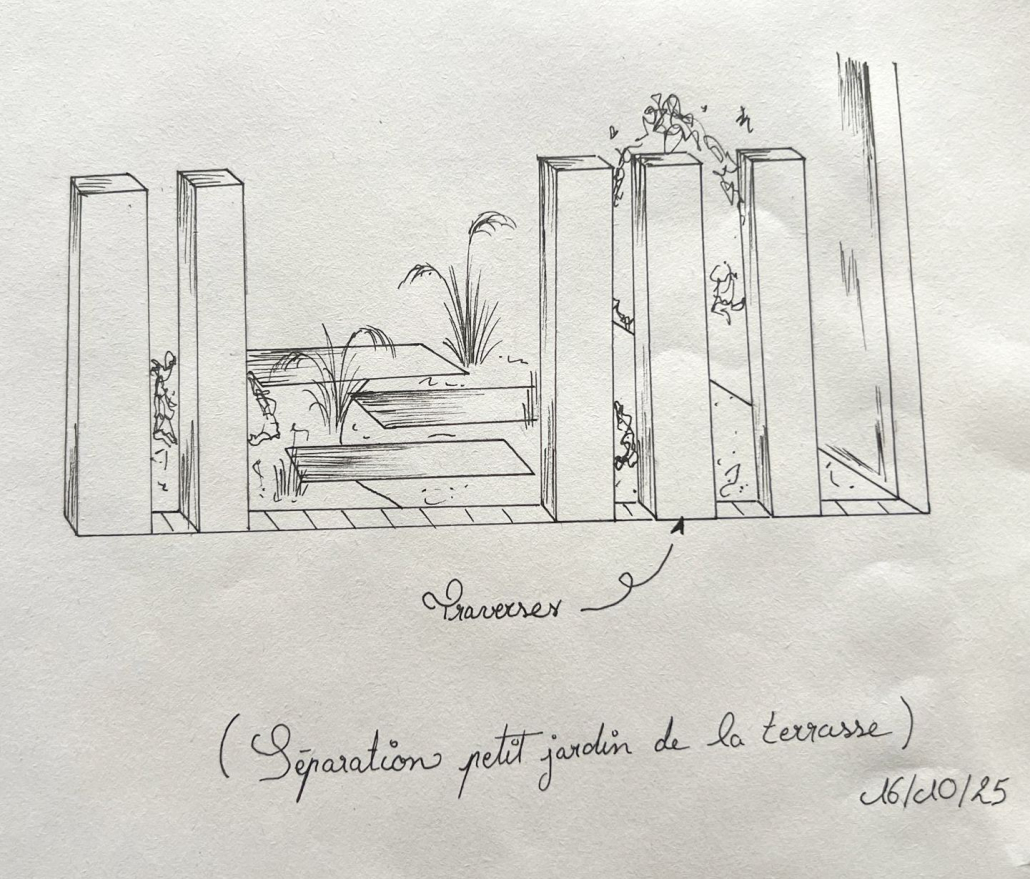 Traverses
(Séparation petit jardin de la terrasse)
16/10/25